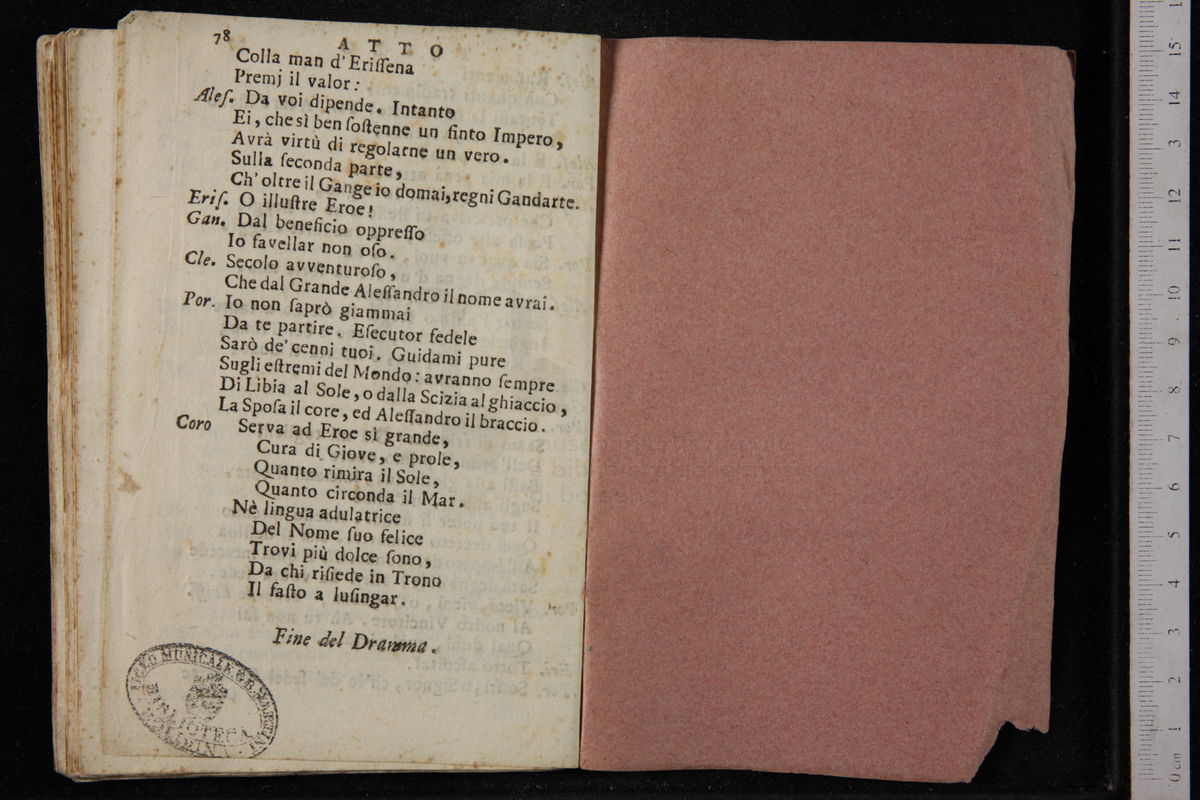 78 ATTO
Colla man d'Eriſſena
Premj il valor:
Aleſ. Da voi dipende. Intanto
Ei, che sì ben ſoſtenne un finto Impero,
Avrà virtù di regolarne un vero.
Sulla ſeconda parte,
Ch' oltre il Gange io domai, regni Gandarte.
Eriſ. O illuſtre Eroe!
Gan. Dal beneficio oppreſſo
Io favellar non oſo.
Cle. Secolo avventuroſo,
Che dal Grande Aleſſandro il nome avrai.
Por. Io non ſaprò giammai
Da te partire. Eſecutor fedele
Sarò de' cenni tuoi. Guidami pure
Sugli eſtremi del Mondo: avranno ſempre
Di Libia al Sole, o dalla Scizia al ghiaccio,
La Spoſa il core, ed Aleſſandro il braccio.
Coro Serva ad Eroe sì grande,
Cura di Giove, e prole,
Quanto rimira il Sole,
Quanto circonda il Mar.
Nè lingua adulatrice
Del Nome ſuo felice
Trovi più dolce ſono,
Da chi riſiede in Trono
Il faſto a luſingar.
Fine del Dramma.
LICEO MUSICALE G. B. MARTINI
BIBLIOTECA
0 cm 1 2 3 4 5 6 7 8 9 10 11 12 13 14 15